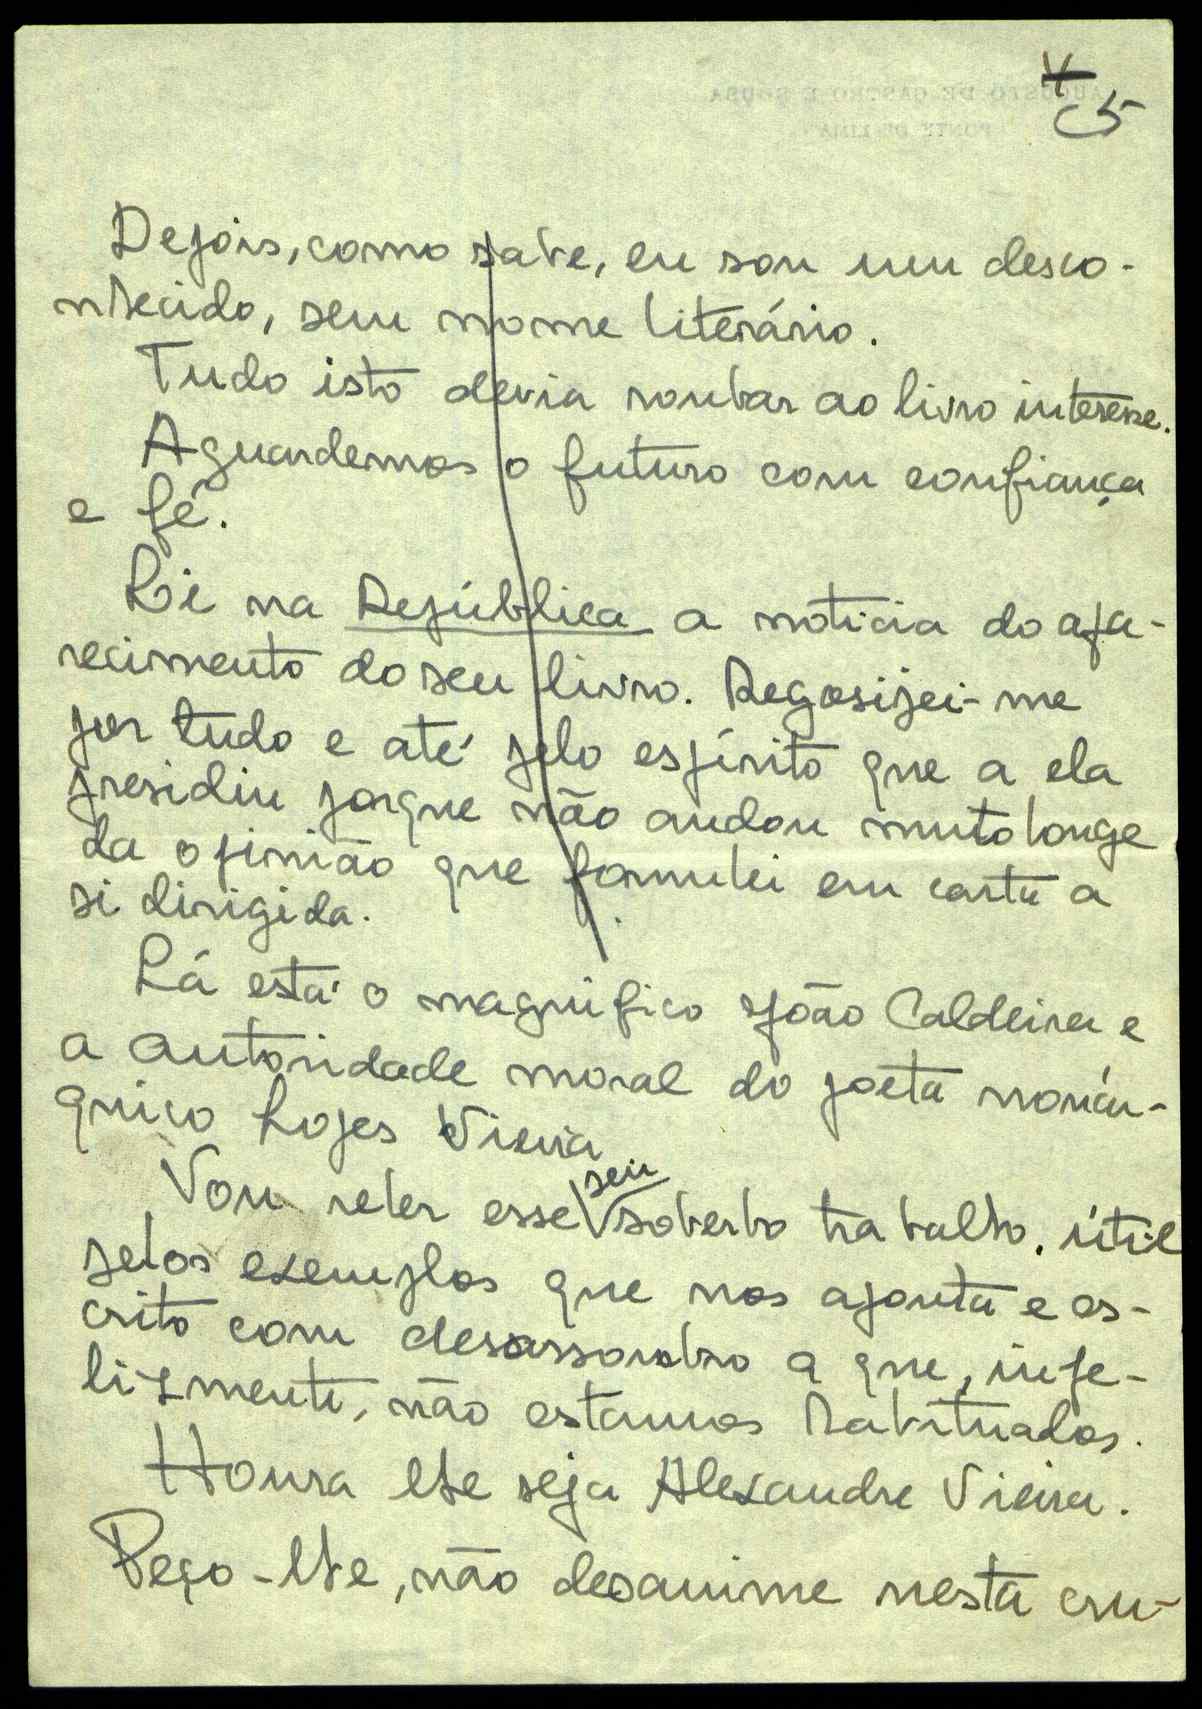 5
Depois, como sabe, eu sou um desco-
nhecido, sem nome literário.
Tudo isto devia roubar ao livro interesse.
Aguardemos o futuro com confiança
e fé.
Li na República a noticia do apa-
recimento do seu livro. Regosijei-me
por tudo e até pelo espírito que a ela
presidiu porque não andou muito longe
da opinião que formulei em carta a
si dirigida.
Lá está o magnifico João Caldeira e
a autoridade moral do poeta monár-
quico Lopes Vieira
Vou reler esse seu soberbo trabalho, útil
pelos exemplos que nos aponta e es-
crito com desassombro a que, infe-
lizmente, não estamos habituados.
Honra lhe seja Alexandre Vieira.
Peço-lhe, não desanime nesta cru-